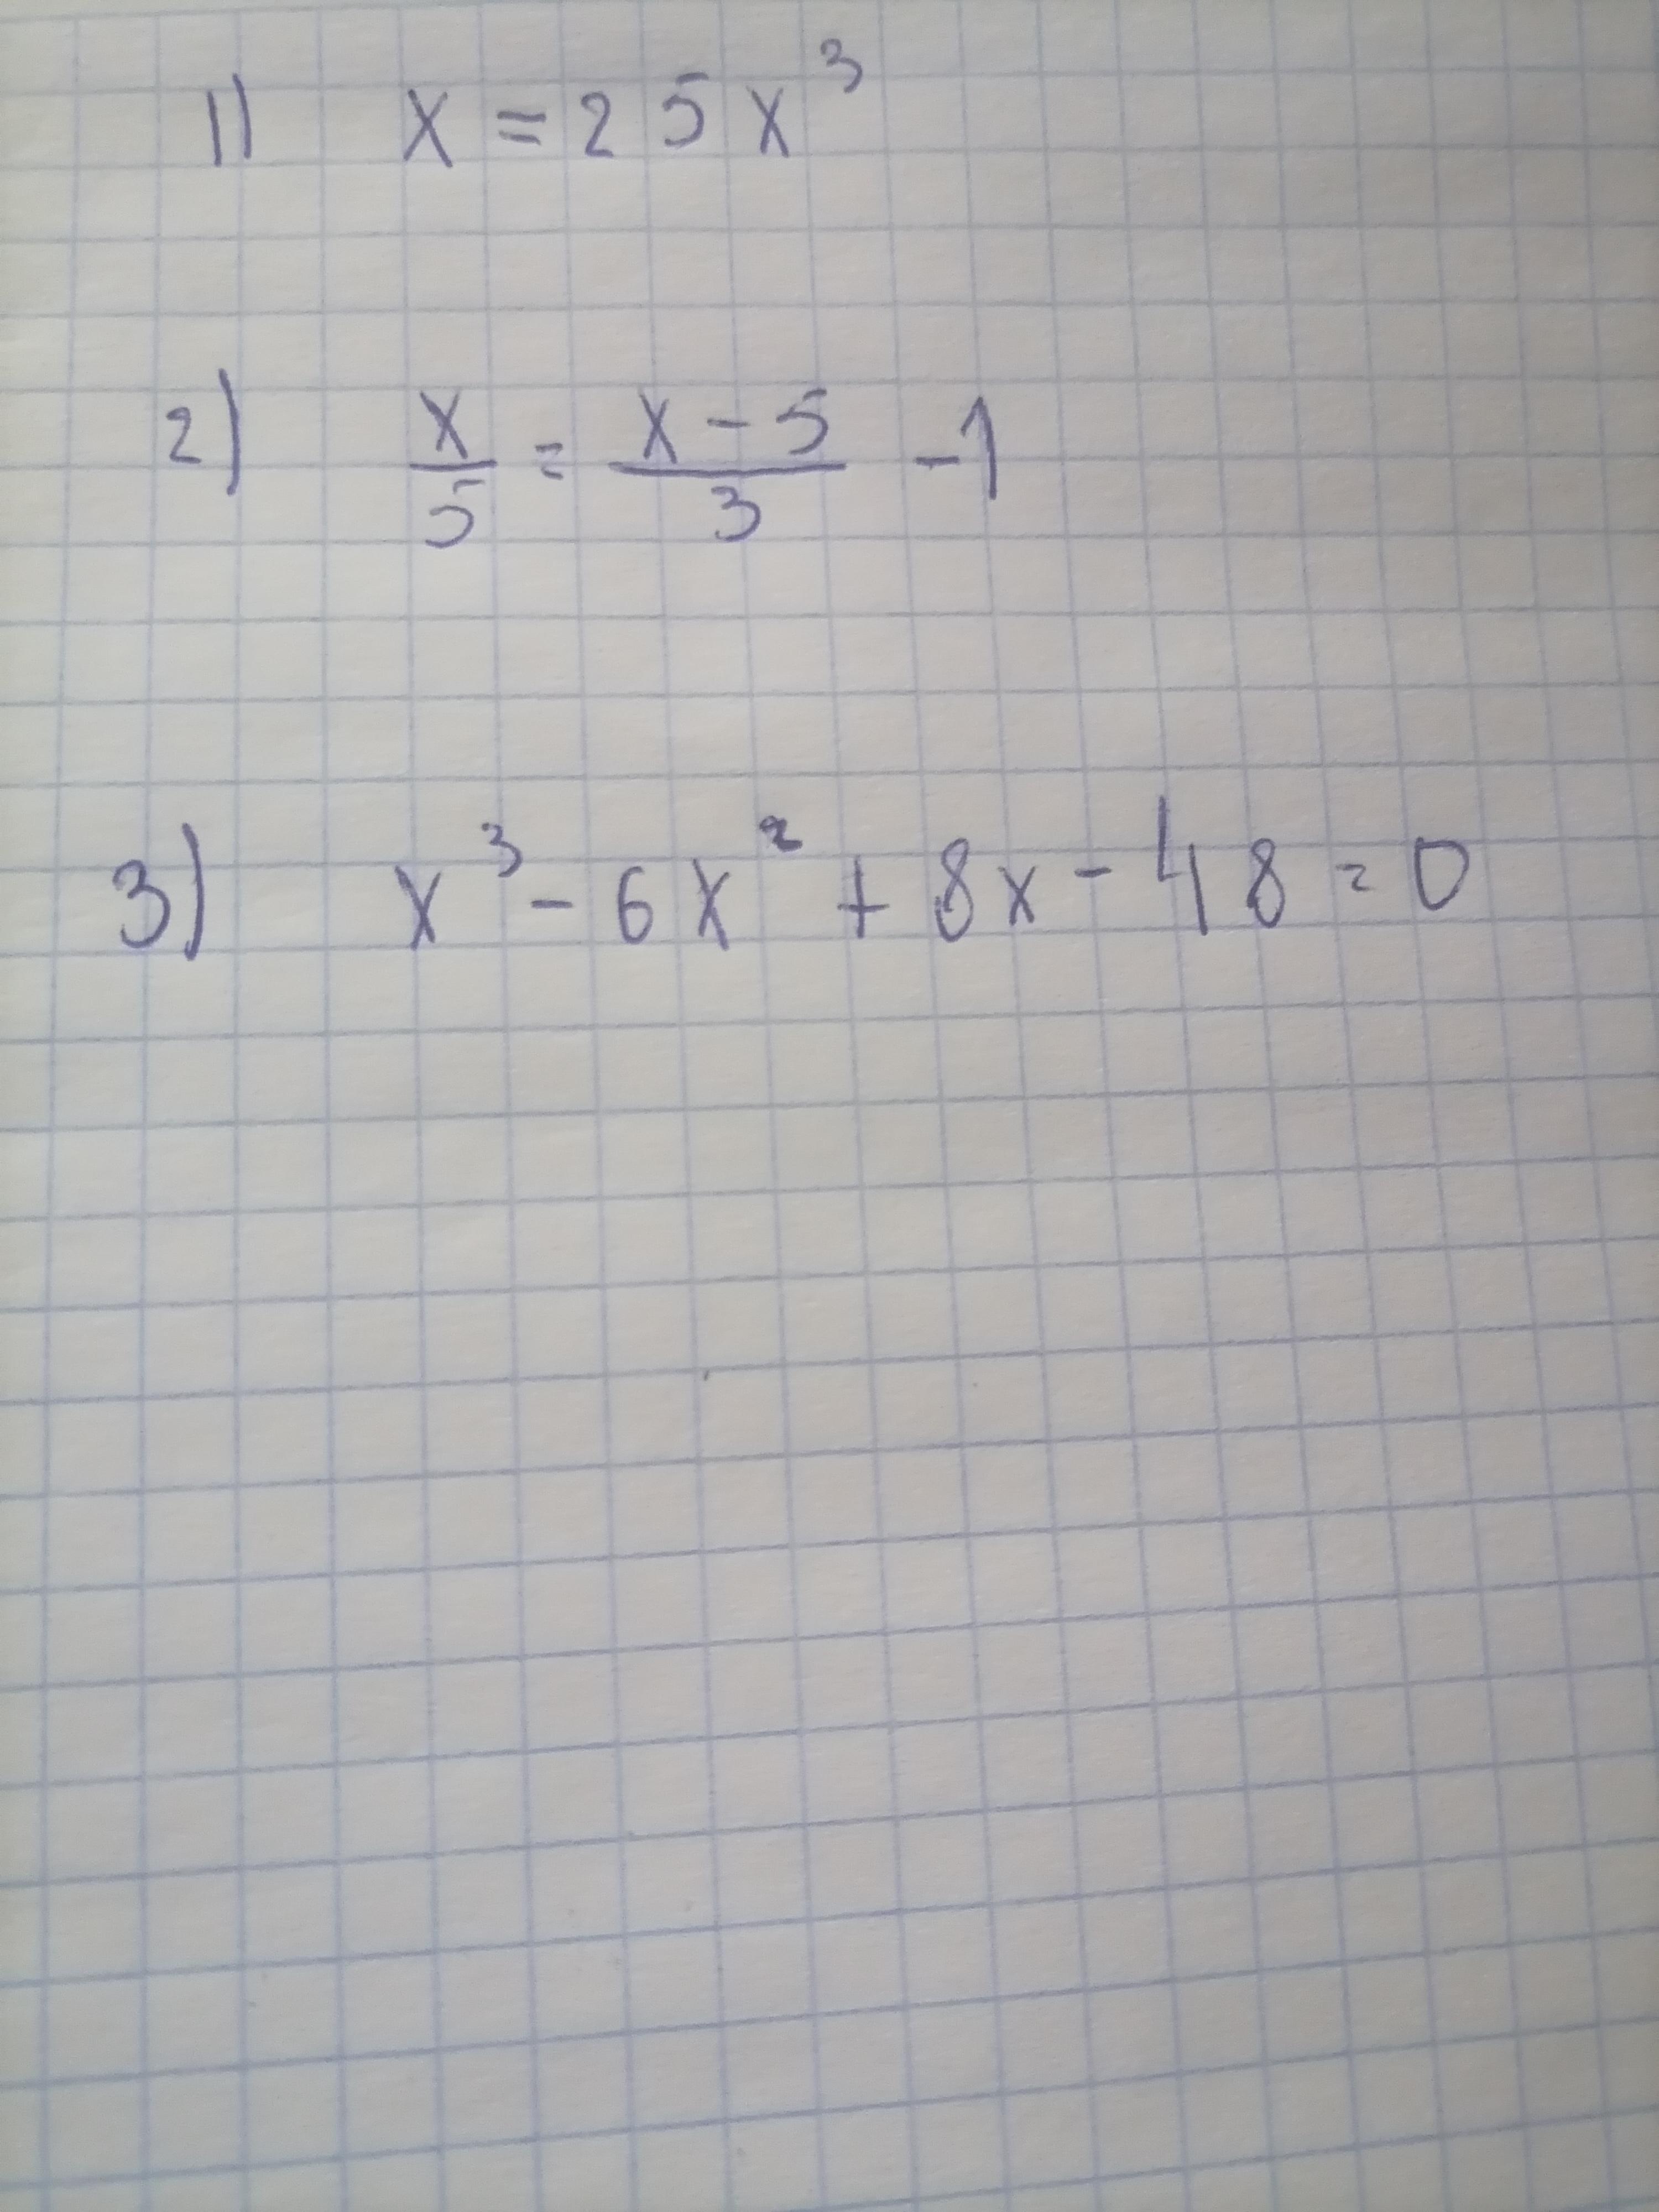 1) x = 25x³
2) x/5 = (x-5)/3 - 1
3) x³ - 6x² + 8x - 48 = 0